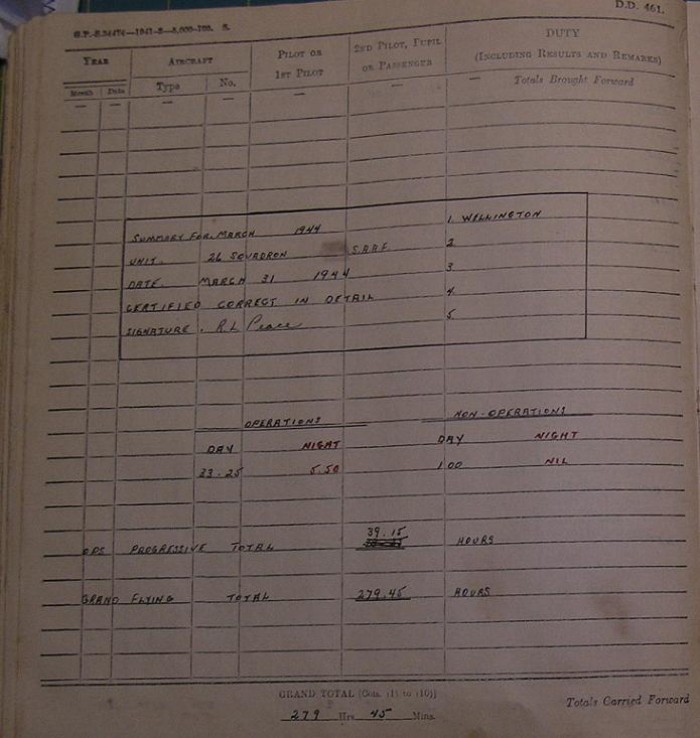 D.D. 461.
G.P.-S.34474—1941-2—8,000-100. S.
YEAR AIRCRAFT PILOT OR 1ST PILOT 2ND PILOT, PUPIL OR PASSENGER DUTY (INCLUDING RESULTS AND REMARKS)
Month Date Type No. Totals Brought Forward
SUMMARY FOR MARCH 1944 1. WELLINGTON
UNIT. 26 SQUADRON S.A.A.F. 2
DATE. MARCH 31 1944 3
CERTIFIED CORRECT IN DETAIL 4.
SIGNATURE. R L 5.
OPERATIONS NON-OPERATIONS
DAY NIGHT DAY NIGHT
33.25 5.50 1.00 NIL
39.15
OPS PROGRESSIVE TOTAL HOURS
GRAND FLYING TOTAL 279.45 HOURS
GRAND TOTAL [Cols. (1) to (10)] Totals Carried Forward
279 Hrs. 45 Mins.